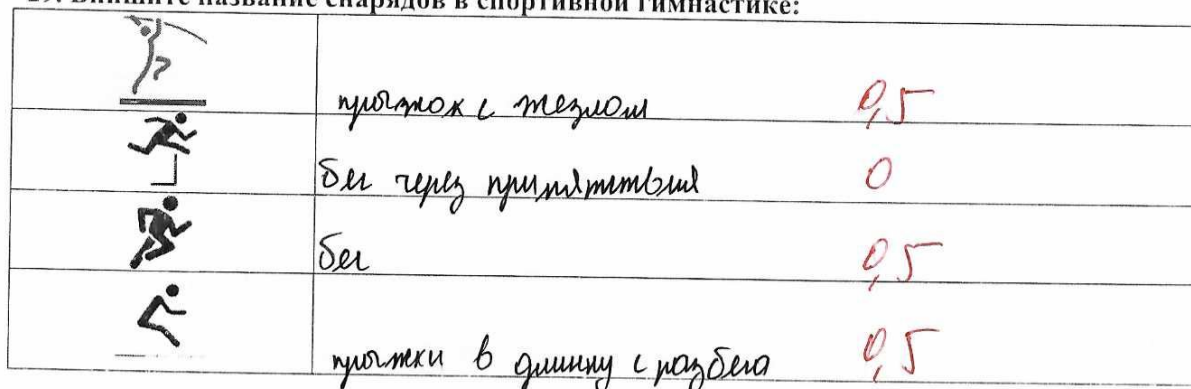 29. Впишите название снарядов в спортивной гимнастике:
?
прыжок с жезлом 0,5
бег через припятствия 0
бег 0,5
прыжки в длинну с разбега 0,5